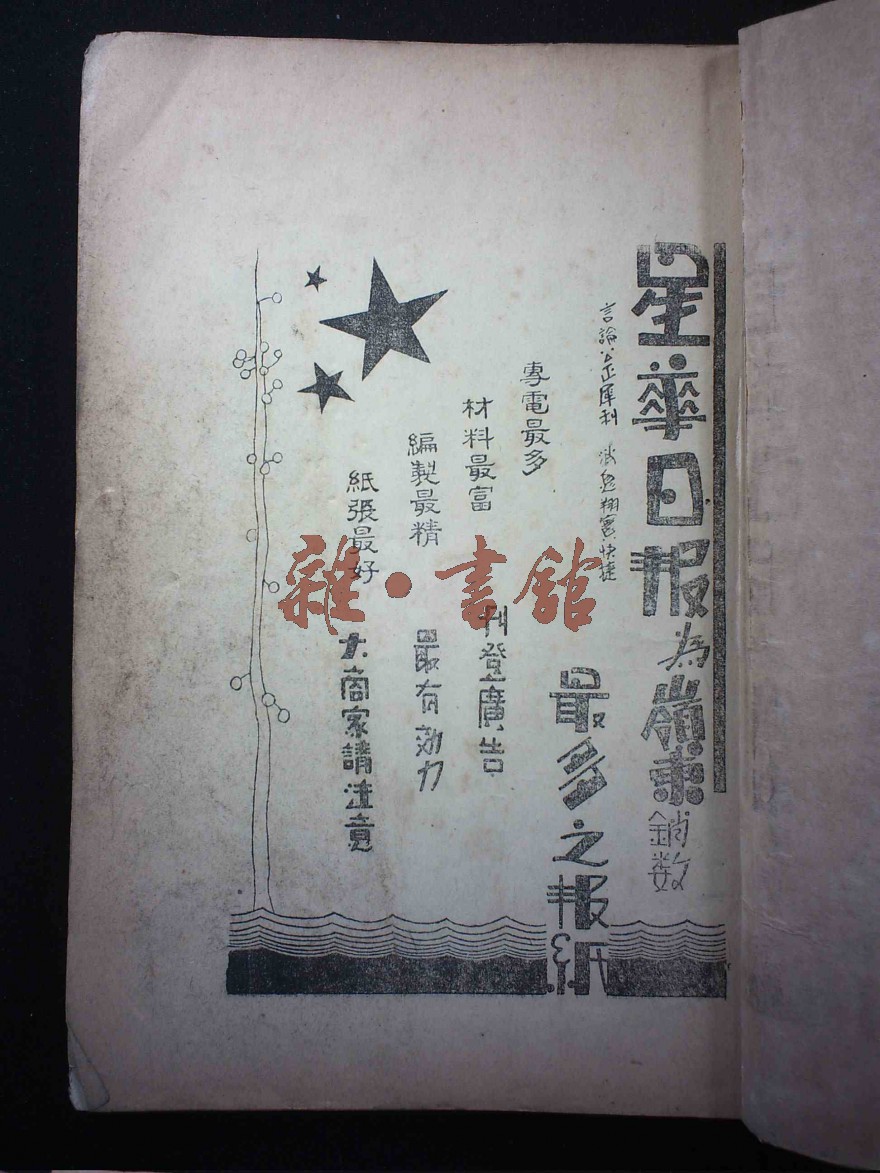 星華日报為嶺東銷数
言論公正犀利 消息翔實快捷
最多之报紙
專電最多
材料最富
刊登廣告
編製最精
最有効力
紙張最好
大商家請注意
雜·書館